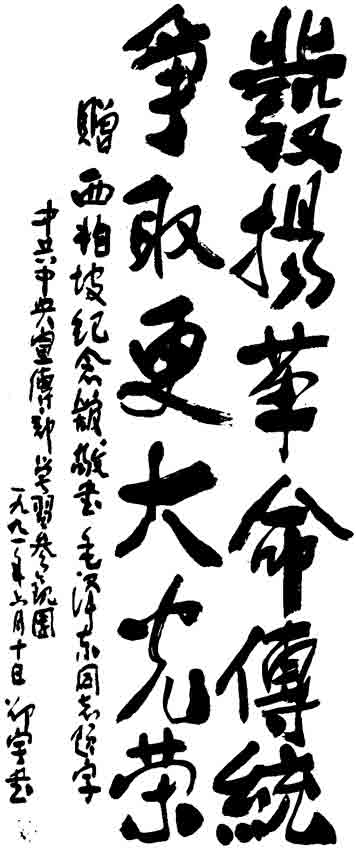 發揚革命傳統
爭取更大光荣
贈西柏坡纪念馆敬书毛泽东同志题字
中共中央宣傳部学習参观团
一九九一年六月十日 书